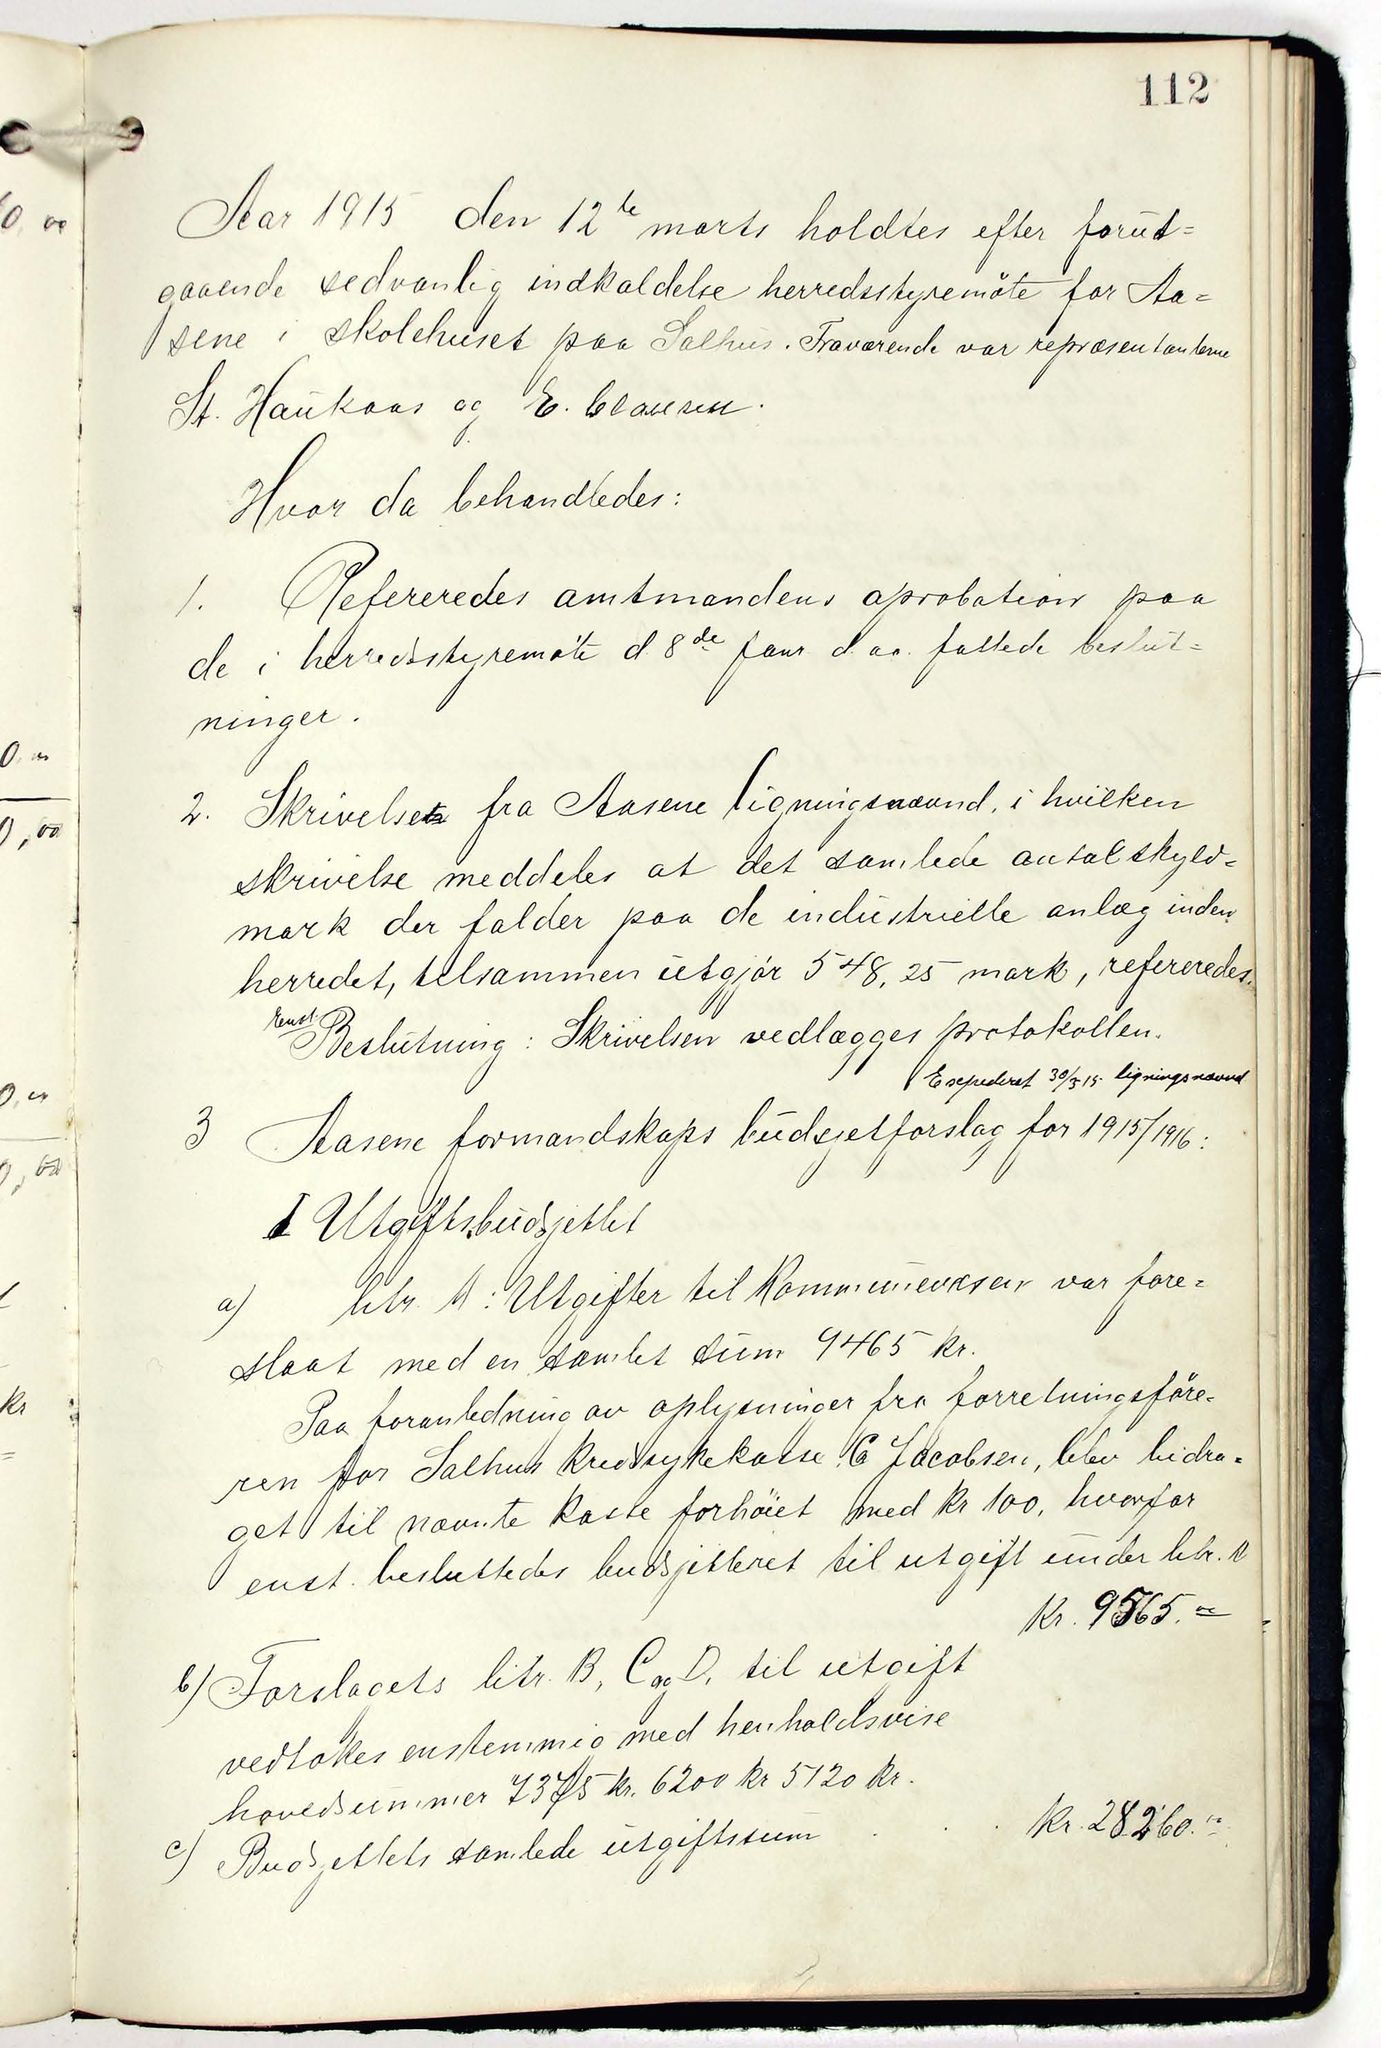 112
Aar 1915 den 12te marts holdtes efter forut=
gaaende sedvanlig indkaldelse herredsstyremöte for Aa=
sene i skolehuset paa Salhus. Fraværende var repræsentanterne
St. Haukaas og E. Clausen.
Hvor da behandledes:
1. Refereredes amtmandens aprobation paa
de i herredsstyremöte d. 8de janr d. aa. fattede beslut=
ninger.
2. Skrivelse fra Aasene ligningsnævnd, i hvilken
skrivelse meddeles at det samlede antal skyld=
mark der falder paa de industrielle anlæg inden
herredet, tilsammen utgjör 548,25 mark, refereredes.
Enst.
Beslutning: Skrivelsen vedlægges protokollen.
Exspederet 30/3 15 ligningsnævnd
3 Aasene formandskaps budsjetforslag for 1915/1916:
I Utgiftsbudsjettet
a) litr. A: Utgifter til Kommunevæsen var fore=
slaat med en samlet sum 9465 kr.
Paa foranledning av oplysninger fra forretningsföre=
ren for Salhus kredssykekasse C Jacobsen, blev bidra=
get til nævnte kasse forhöiet med kr 100, hvorfor
enst. besluttedes budsjetteret til utgift under litr. A
kr. 9565.=
b) Forslagets litr. B, C og D, til utgift
vedtokes enstemmig med henholdsvise
hovedsummer 7375 kr. 6200 kr 5120 kr.
c) Budsjettets samlede utgiftssum . . . kr. 28260.=
0,00
0,00
kr